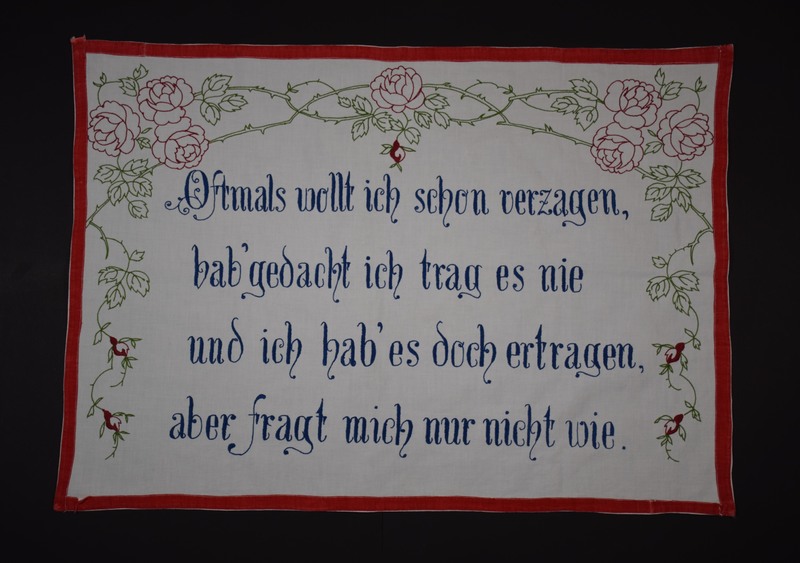 Oftmals wollt ich schon verzagen,
hab'gedacht ich trag es nie
und ich hab'es doch ertragen,
aber fragt mich nur nicht wie.